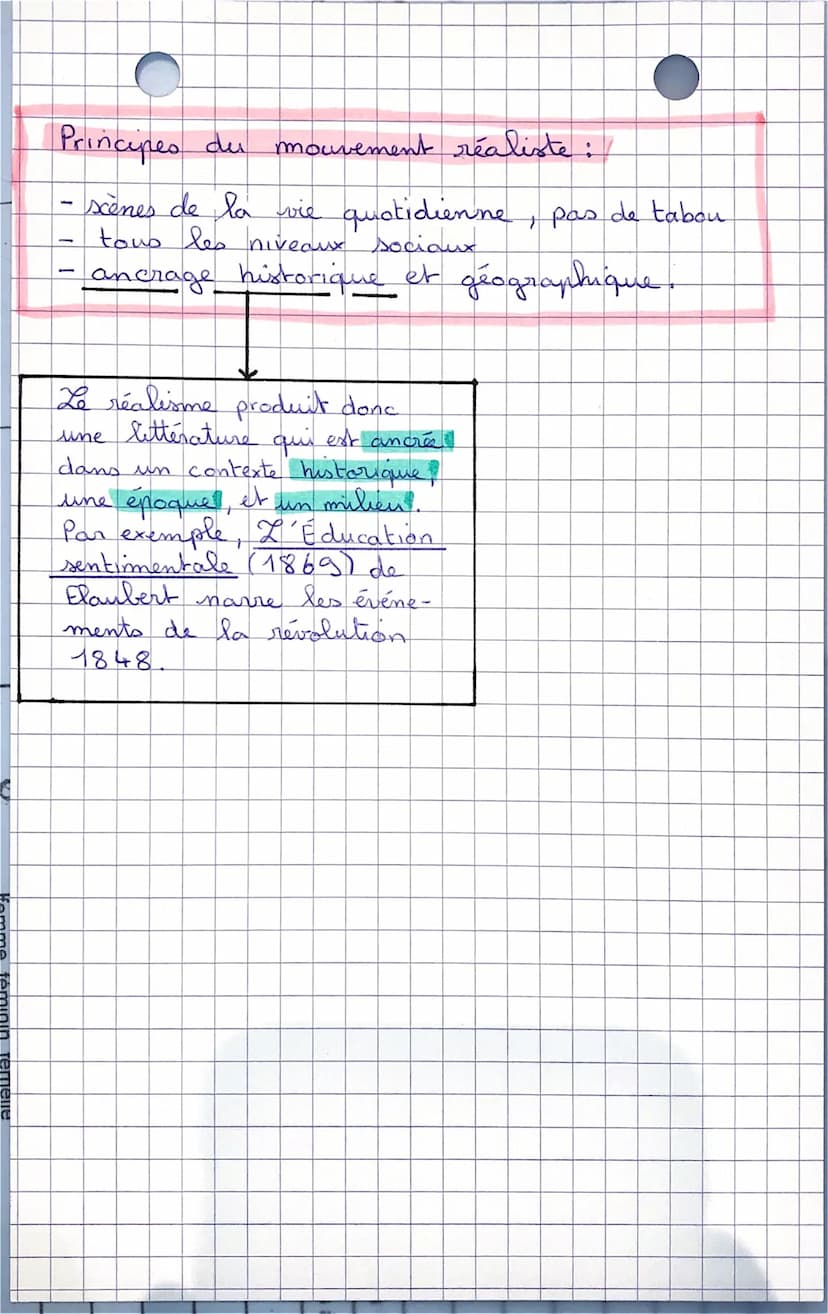 Principes du mouvement réaliste :
- scènes de la vie quotidienne, pas de tabou
- tous les niveaux sociaux
- ancrage historique et géographique.
Le réalisme produit donc
une littérature qui est ancrée
dans un contexte historique,
une époque, et un milieu.
Par exemple, L'Éducation
sentimentale (1869) de
Flaubert narre les événe-
ments de la révolution
1848.
femme féminin femelle